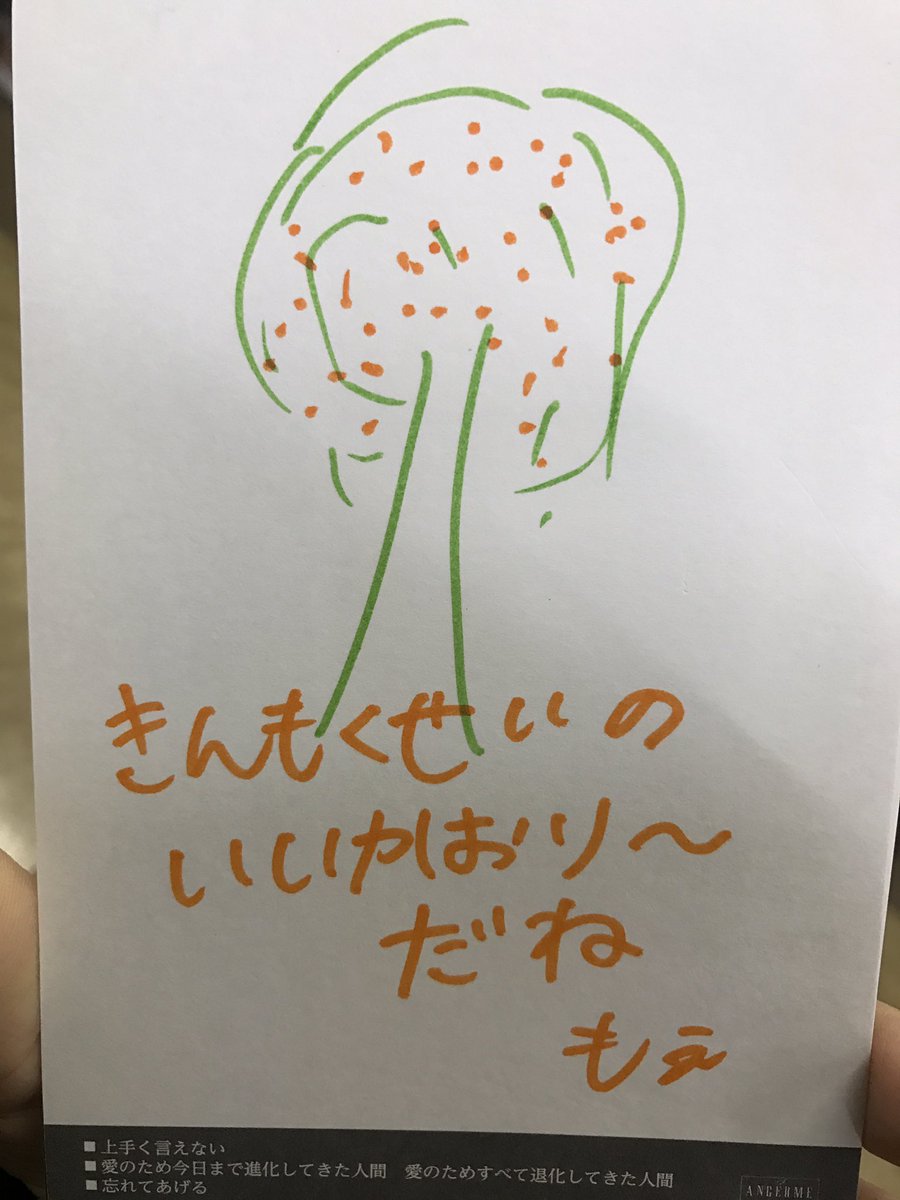 きんもくせいの
いいかほおり〜
だね
もえ
■上手く言えない
■愛のため今日まで進化してきた人間　愛のためすべて退化してきた人間
■忘れてあげる
ANGERME